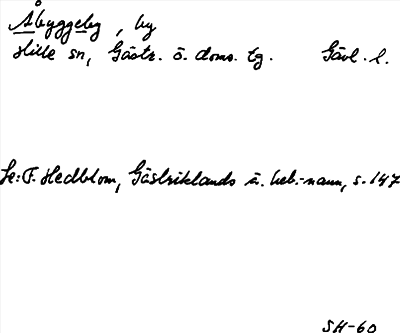 Åbyggeby, by
Hille sn, Gästr. ö. doms. tg. Gävl. l.
Se: F. Hedblom, Gästriklands ä. beb.-namn, s. 147
SH-60